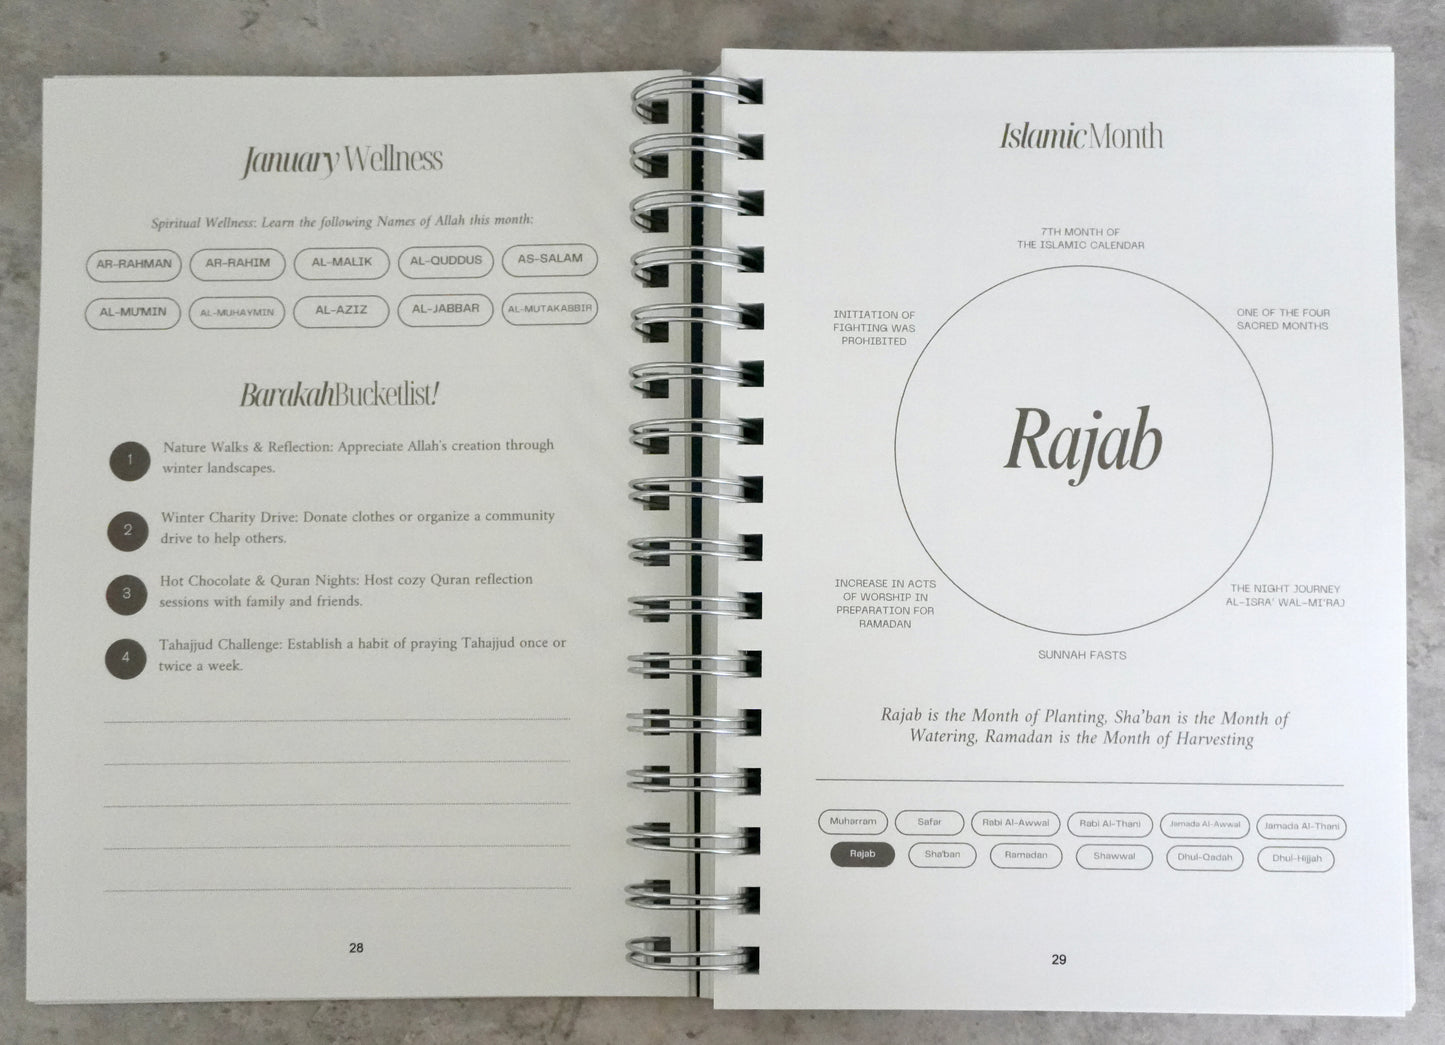 January Wellness
Spiritual Wellness: Learn the following Names of Allah this month:
AR-RAHMAN AR-RAHIM AL-MALIK AL-QUDDUS AS-SALAM
AL-MU'MIN AL-MUHAYMIN AL-AZIZ AL-JABBAR AL-MUTAKABBIR
Barakah Bucketlist!
1 Nature Walks & Reflection: Appreciate Allah's creation through
winter landscapes.
2 Winter Charity Drive: Donate clothes or organize a community
drive to help others.
3 Hot Chocolate & Quran Nights: Host cozy Quran reflection
sessions with family and friends.
4 Tahajjud Challenge: Establish a habit of praying Tahajjud once or
twice a week.
28
Islamic Month
7TH MONTH OF
THE ISLAMIC CALENDAR
ONE OF THE FOUR
SACRED MONTHS
THE NIGHT JOURNEY
AL-ISRA' WAL-MI'RAJ
SUNNAH FASTS
INCREASE IN ACTS
OF WORSHIP IN
PREPARATION FOR
RAMADAN
INITIATION OF
FIGHTING WAS
PROHIBITED
Rajab
Rajab is the Month of Planting, Sha'ban is the Month of
Watering, Ramadan is the Month of Harvesting
Muharram Safar Rabi Al-Awwal Rabi Al-Thani Jamada Al-Awwal Jamada Al-Thani
Rajab Sha'ban Ramadan Shawwal Dhul-Qadah Dhul-Hijjah
29